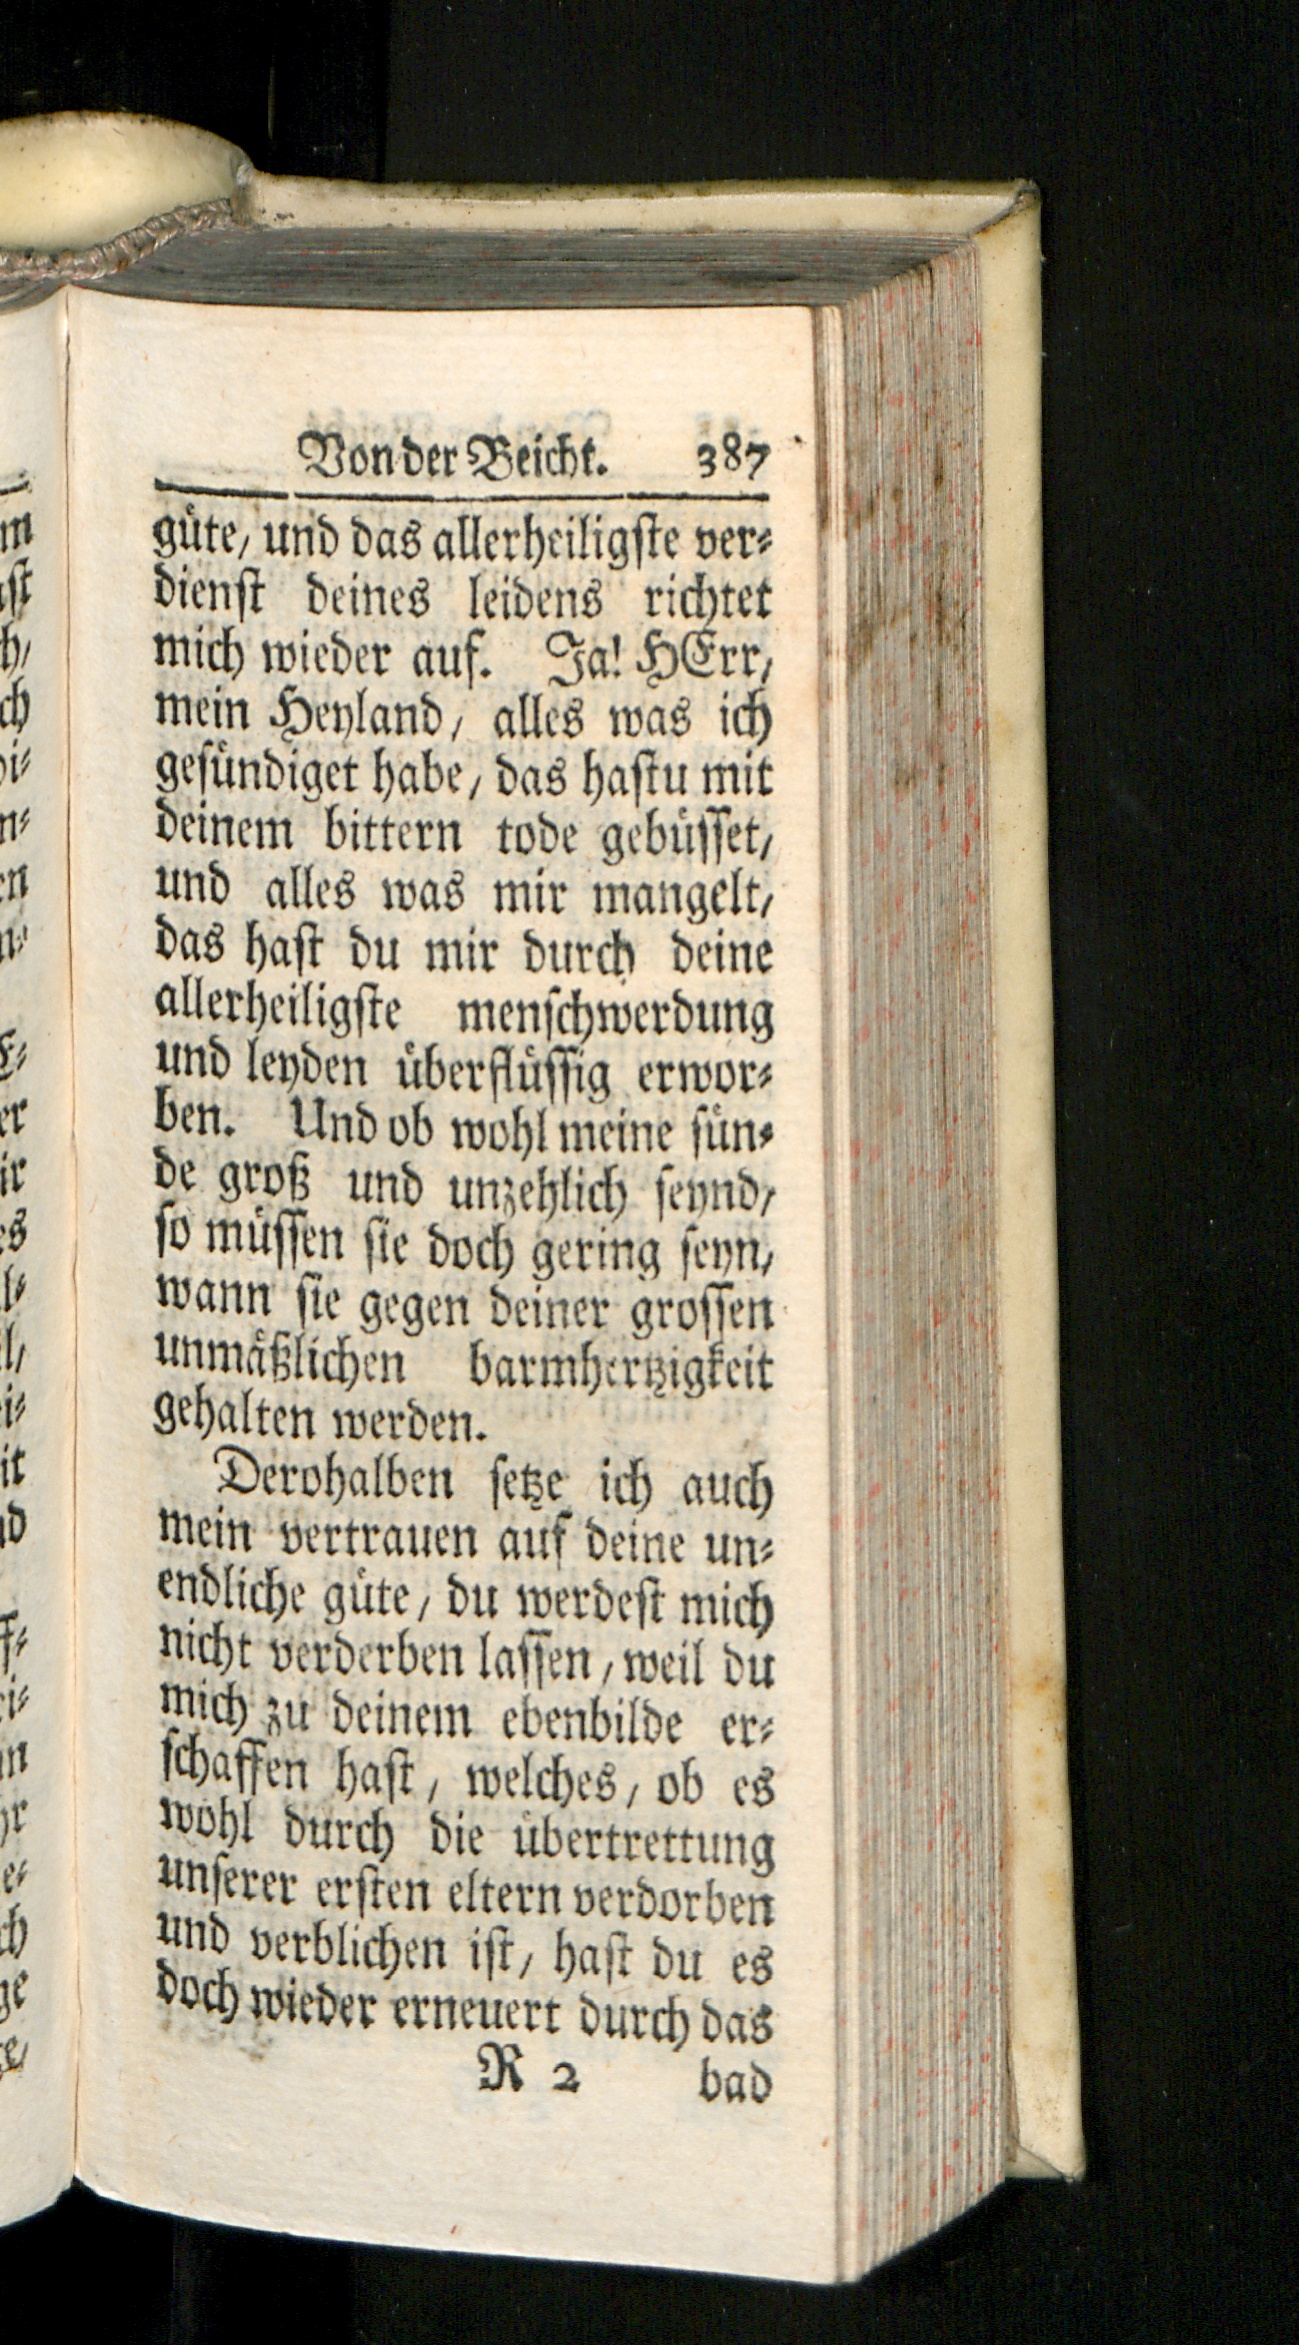 Von der Beicht. 387
güte, und das allerheiligſte ver⸗
dienſt deines leidens richtet
mich wieder auf. Ja! HErr,
mein Heyland, alles was ich
geſündiget habe, das haſtu mit
deinem bittern tode gebüſſet,
und alles was mir mangelt,
das haſt du mir durch deine
allerheiligſte menſchwerdung
und leyden überflüſſig erwor⸗
ben. Und ob wohl meine ſün⸗
de groß und unzehlich ſeynd,
ſo müſſen ſie doch gering ſeyn,
wann ſie gegen deiner groſſen
unmäßlichen barmhertzigkeit
gehalten werden.
Derohalben ſetze ich auch
mein vertrauen auf deine un⸗
endliche güte, du werdeſt mich
nicht verderben laſſen, weil du
mich zu deinem ebenbilde er⸗
ſchaffen haſt, welches, ob es
wohl durch die übertrettung
unſerer erſten eltern verdorben
und verblichen iſt, haſt du es
doch wieder erneuert durch das
R 2 bad